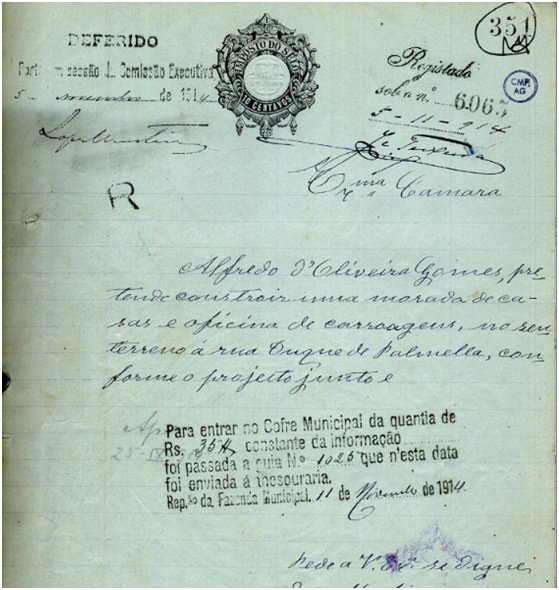 351
DEFERIDO
Porto em sessão da Comissão Executiva
5 novembro de 1914
IMPOSTO DO SELO
10 CENTAVOS
Registado
sob o n.º 6065
5-11-914
CMP
AG
R
Ex.ma Camara
Alfredo d'Oliveira Gomes, pre-
tende construir uma morada de ca-
sas e oficina de carroagens, no seu
terreno á rua Duque de Palmella, con-
forme o projecto junto e
Para entrar no Cofre Municipal da quantia de
Rs. constante da informação
foi passada a guia N.º 1025 que n'esta data
foi enviada á thesouraria.
Rep.ão da Fazenda Municipal, 11 de Novembro de 1914.
Pede a V. Ex.as se digne